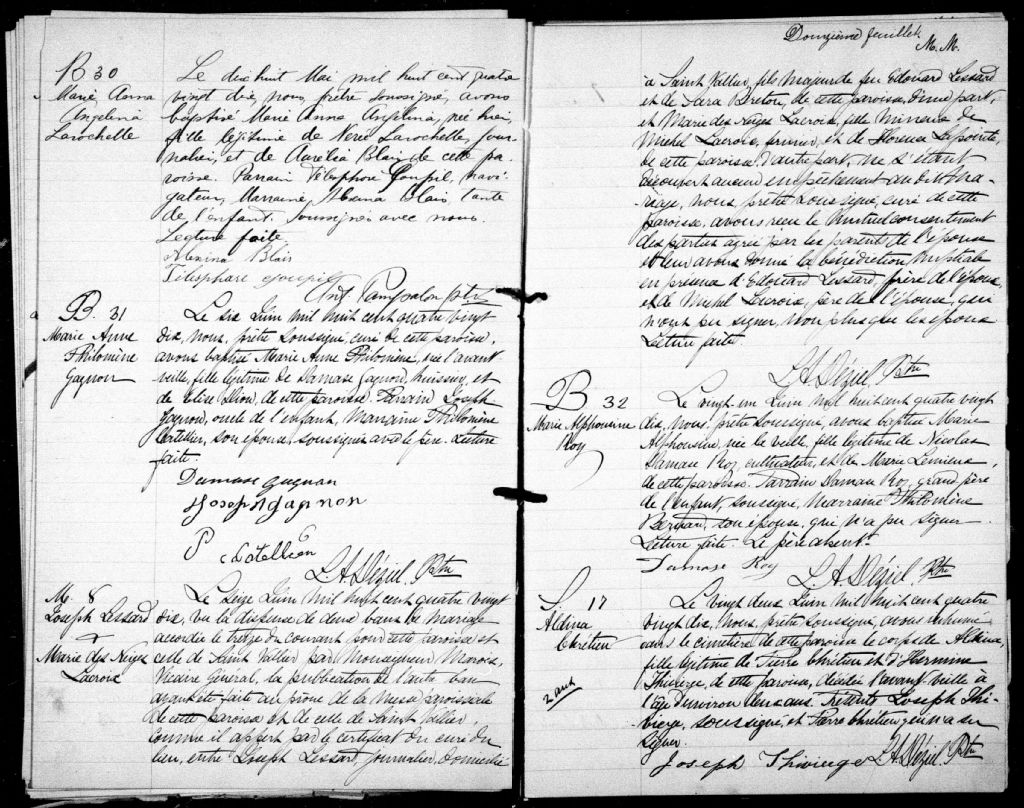 B 30
Marie Anna
Angelina
Larochelle
Le dix huit Mai mil huit cent quatre
vingt dix, nous, prêtre soussigné, avons
baptisé Marie Anna Angelina, née hier,
fille légitime de Nérée Larochelle, jour-
nalier, et de Aurélia Blais de cette pa-
roisse. Parrain Télesphore Goupil, navi-
gateur, Marraine, Alexina Blais, tante
de l'enfant. Soussignés avec nous.
Lecture faite
Alexina Blais
Télesphore Goupil
Ant. Pampalon Ptre
B. 31
Marie Anne
Philomène
Gagnon
Le six Juin mil huit cent quatre vingt
dix, nous, prêtre soussigné, curé de cette paroisse,
avons baptisé Marie Anne Philomène, née l'avant
veille, fille légitime de Damase Gagnon, huissier, et
de Elise Dion, de cette paroisse. Parrain Joseph
Gagnon, oncle de l'enfant, Marraine Philomène
son épouse, soussignés avec le père. Lecture
faite.
Damase gagnon
Joseph gagnon
P
L A Déziel Ptre
M. 8
Joseph Lessard
+
Marie des Neiges
Lacroix
Le seize Juin mil huit cent quatre vingt
dix, vu la dispense de deux bans de mariage
accordée le treize du courant pour cette paroisse et
celle de Saint Vallier par Monseigneur Marois,
Vicaire Général, la publication de l'autre ban
ayant été faite au prône de la Messe paroissiale
de cette paroisse et de celle de Saint Vallier
comme il appert par le certificat du curé du
lieu, entre Joseph Lessard, journalier, domicilié
Douzième feuillet.
M. M.
à Saint Vallier, fils majeur de feu Edouard Lessard
et de Sara Breton, de cette paroisse, d'une part,
et Marie des Neiges Lacroix, fille mineure de
Michel Lacroix, fermier, et de Lapointe,
de cette paroisse, d'autre part, ne s'étant
découvert aucun empêchement au dit ma-
riage, nous, prêtre soussigné, curé de cette
paroisse, avons reçu le mutuel consentement
des parties agréé par les parents de l'épouse
et leur avons donné la bénédiction nuptiale
en présence d'Edouard Lessard, frère de l'époux,
et de Michel Lacroix, père de l'épouse, qui
n'ont pu signer, non plus que les époux
Lecture faite.
L A Déziel Ptre
B 32
Marie Alphonsine
Roy
Le vingt un Juin mil huit cent quatre vingt
dix, nous, prêtre soussigné, avons baptisé Marie
Alphonsine, née la veille, fille légitime de Nicolas
Damase Roy, cultivateur, et de Marie Lemieux,
de cette paroisse. Parrain Damase Roy, grand père
de l'enfant, soussigné, Marraine Philomène
son épouse, qui n'a pu signer.
Lecture faite. Le père absent.
Damase Roy
L. A Déziel Ptre
S. 17
Aldina
Chrétien
2 ans
Le vingt deux Juin mil huit cent quatre
vingt dix, nous, prêtre soussigné, avons inhumé
dans le cimetière de cette paroisse le corps de Aldina,
fille légitime de Pierre Chrétien et d'Hermine
Thivierge, de cette paroisse, décédée l'avant veille à
l'âge d'environ deux ans. Présents Joseph Thi-
vierge, soussigné, et Pierre Chrétien qui n'a su
signer.
Joseph Thivierge L A Déziel Ptre